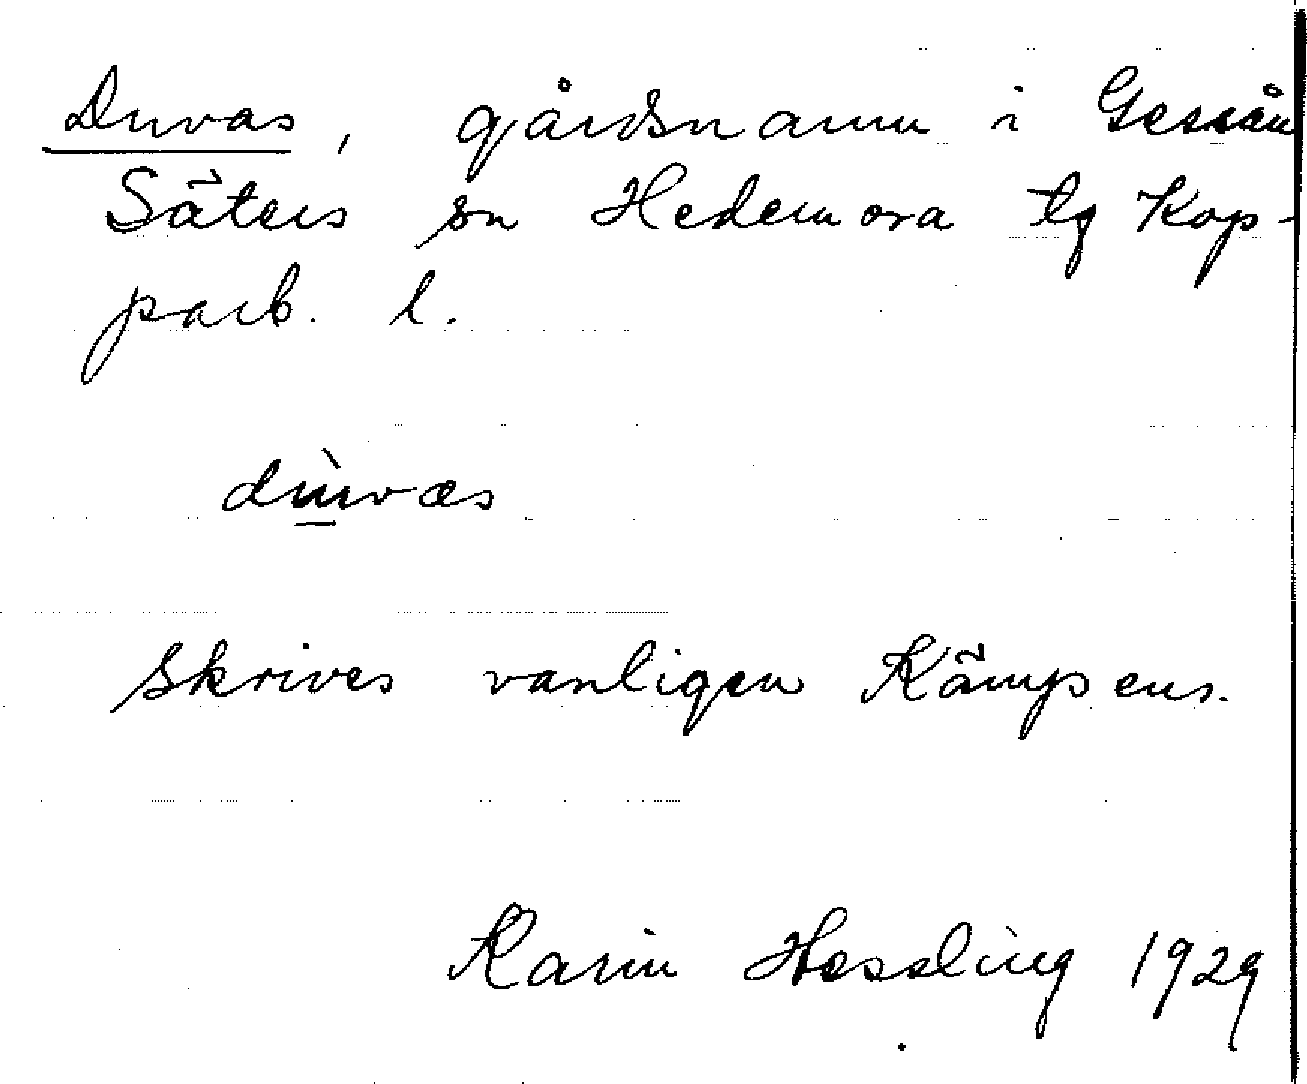 Duvas, gårdsnamn i Gessån
Säters sn Hedemora tg Kop-
parb. l.
dùvas
skrives vanligen Kämpens.
Karin Hessling 1929